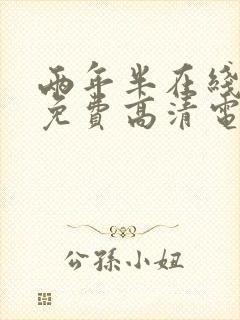 两年半在线
免费高清电
公孙小姐